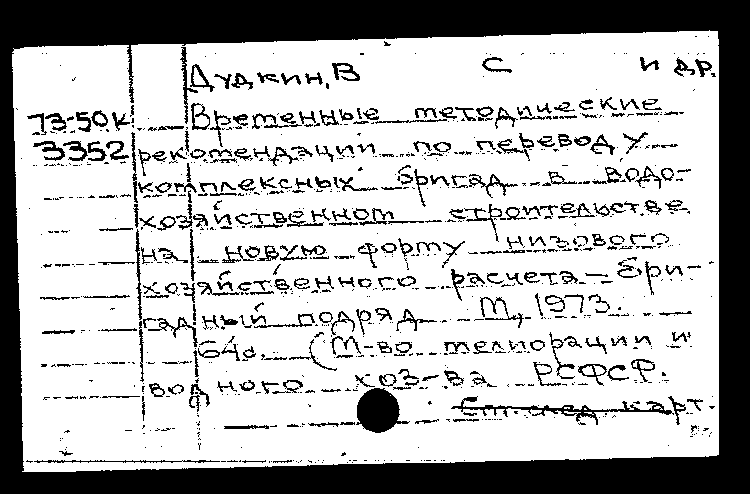 Дудкин, В С и др.
73-50к Временные методические
3352 рекомендации по переводу
комплексных бригад в водо-
хозяйственном строительстве
на новую форму низового
хозяйственного расчета – бри-
гадный подряд. М., 1973.
64с. (М-во мелиорации и
водного хоз-ва РСФСР.
См. след карт.